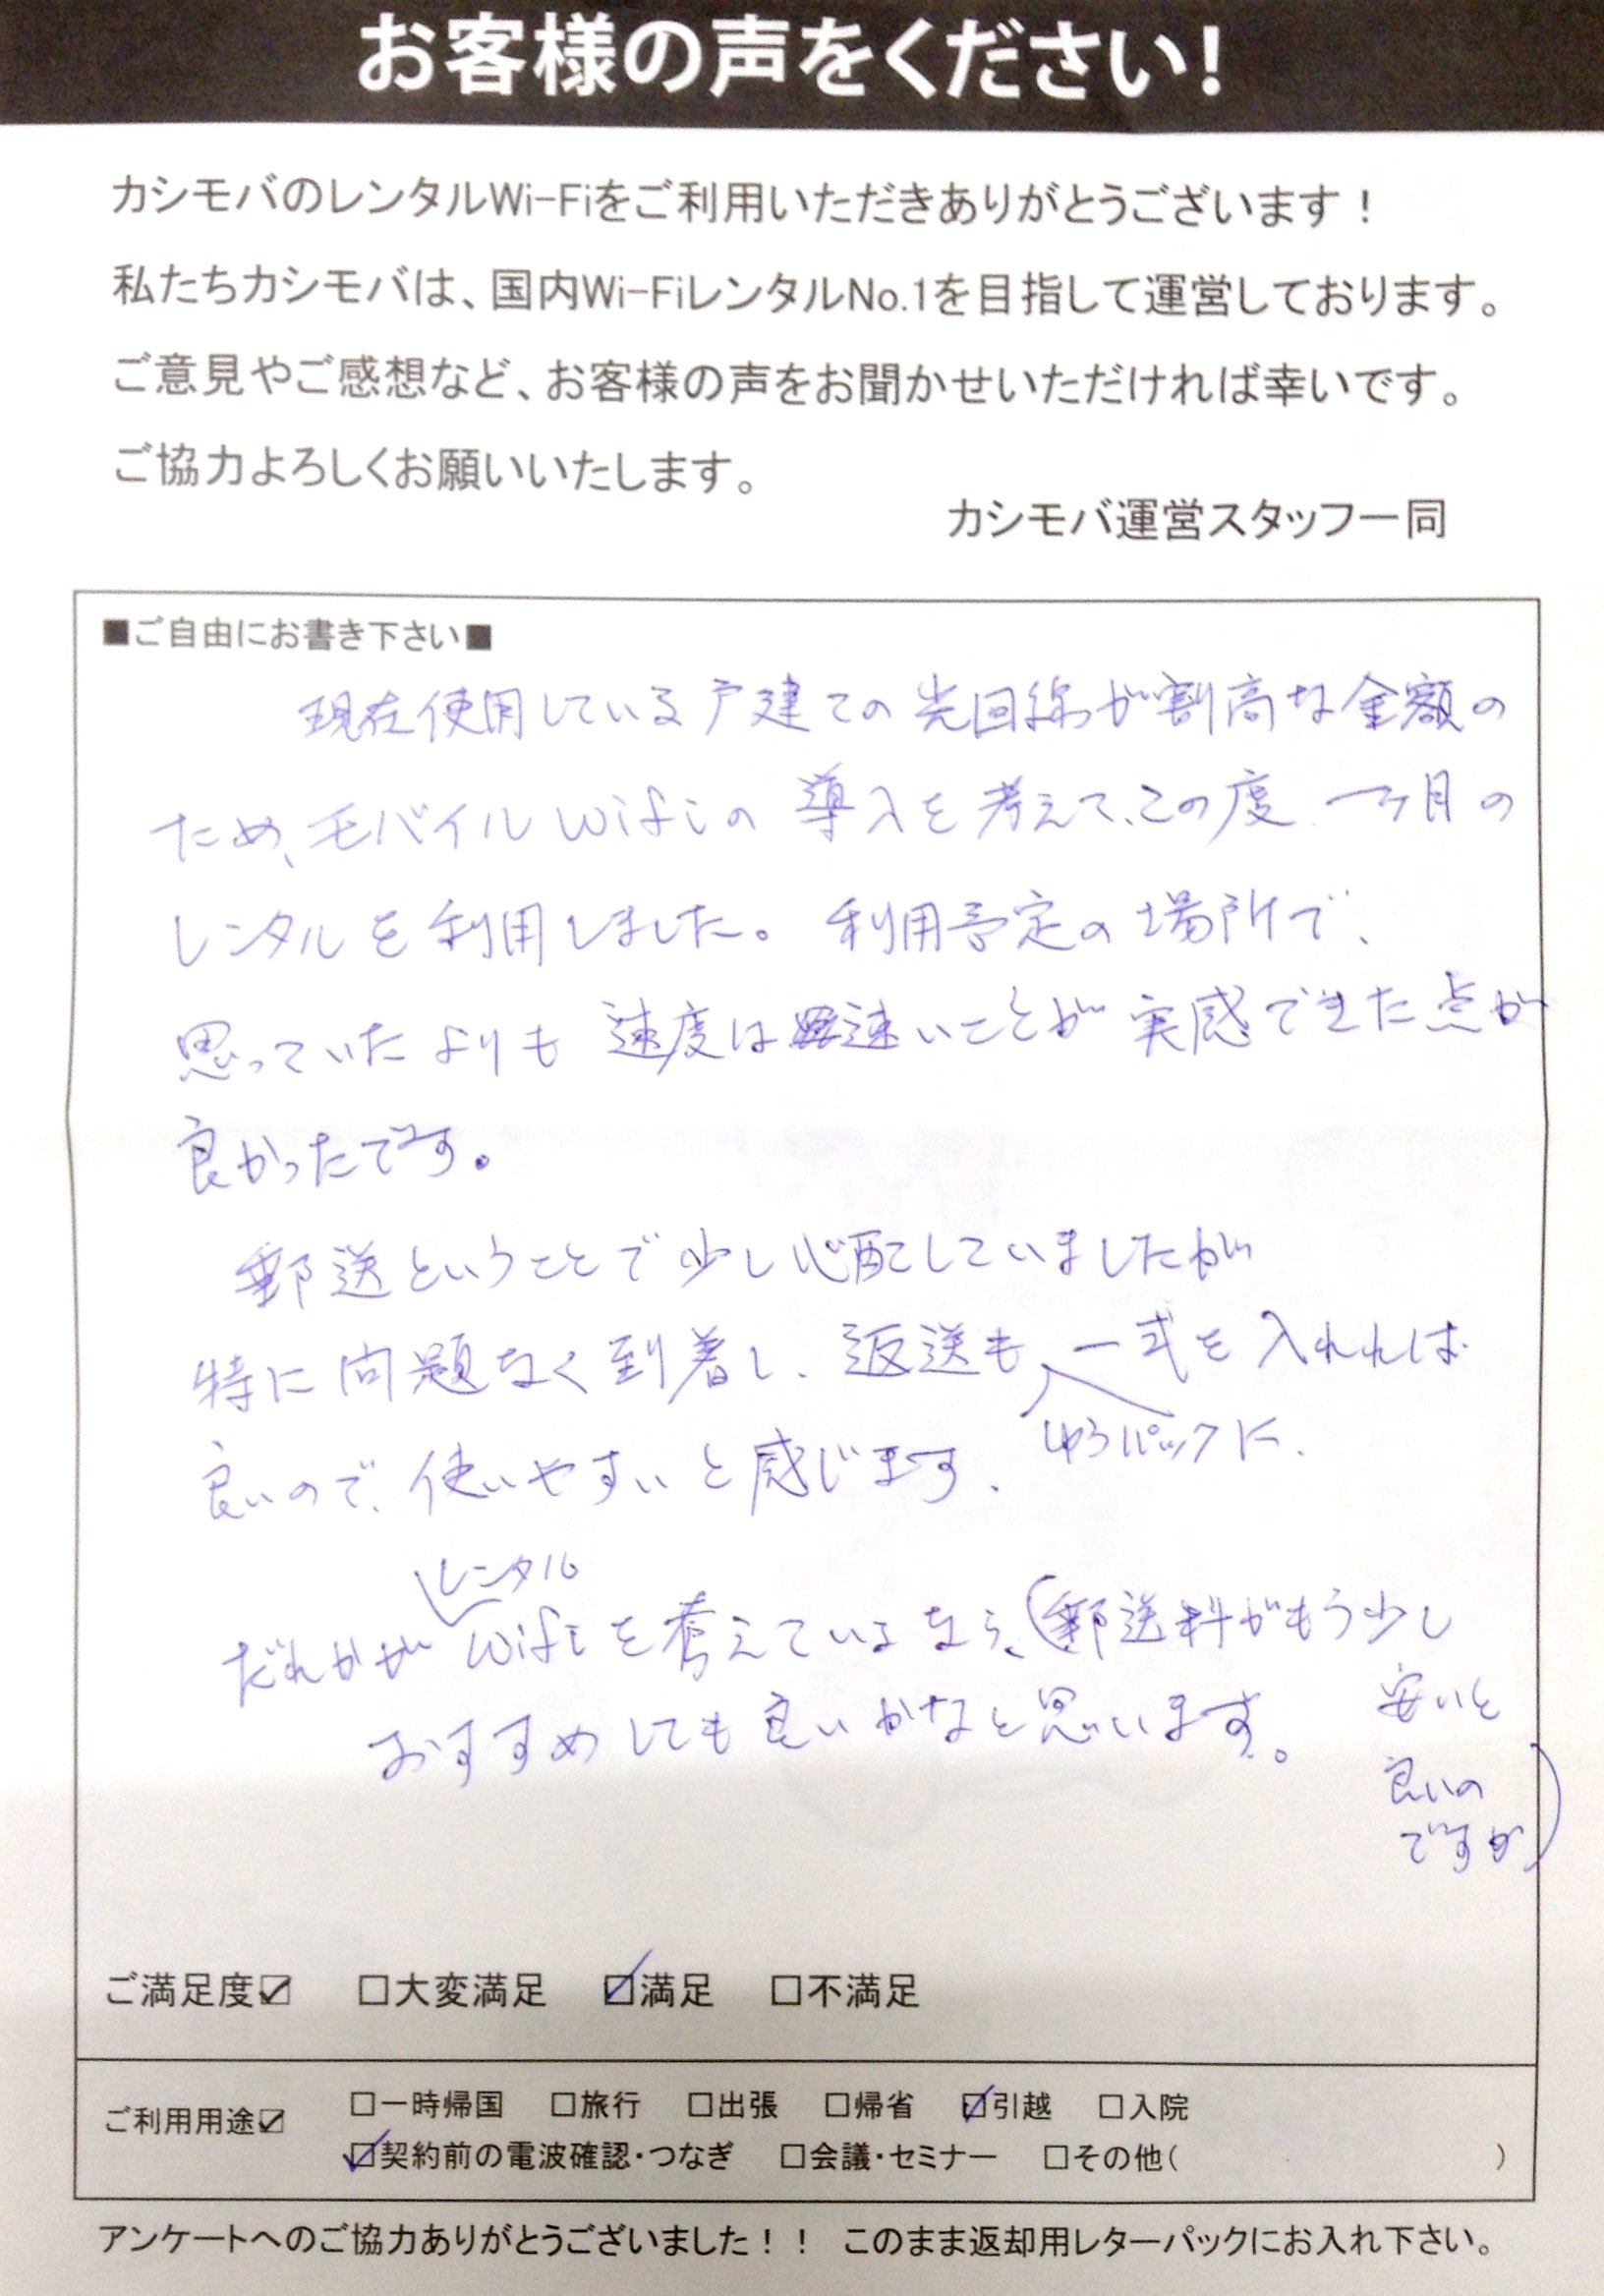 お客様の声をください!
カシモバのレンタルWi-Fiをご利用いただきありがとうございます！
私たちカシモバは、国内Wi-FiレンタルNo.1を目指して運営しております。
ご意見やご感想など、お客様の声をお聞かせいただければ幸いです。
ご協力よろしくお願いいたします。
カシモバ運営スタッフ一同
■ご自由にお書き下さい■
現在使用している戸建ての光回線が割高な金額の
ため、モバイルwifiの導入を考えて、この度、一ヶ月の
レンタルを利用しました。利用予定の場所で、
思っていたよりも速度は速いことが実感できた点が
良かったです。
郵送ということで少し心配していましたが
特に問題なく到着し、返送も一式を入れれば
ゆうパックに、
良いので、使いやすいと感じます、
レンタル
だれかがwifiを考えているなら、(郵送料がもう少し
安いと
おすすめしても良いかなと思います。
良いの
ですが)
ご満足度☑ □大変満足 ☑満足 □不満足
ご利用用途☑ □一時帰国 □旅行 □出張 □帰省 ☑引越 □入院
☑契約前の電波確認・つなぎ □会議・セミナー □その他( )
アンケートへのご協力ありがとうございました！！ このまま返却用レターパックにお入れ下さい。